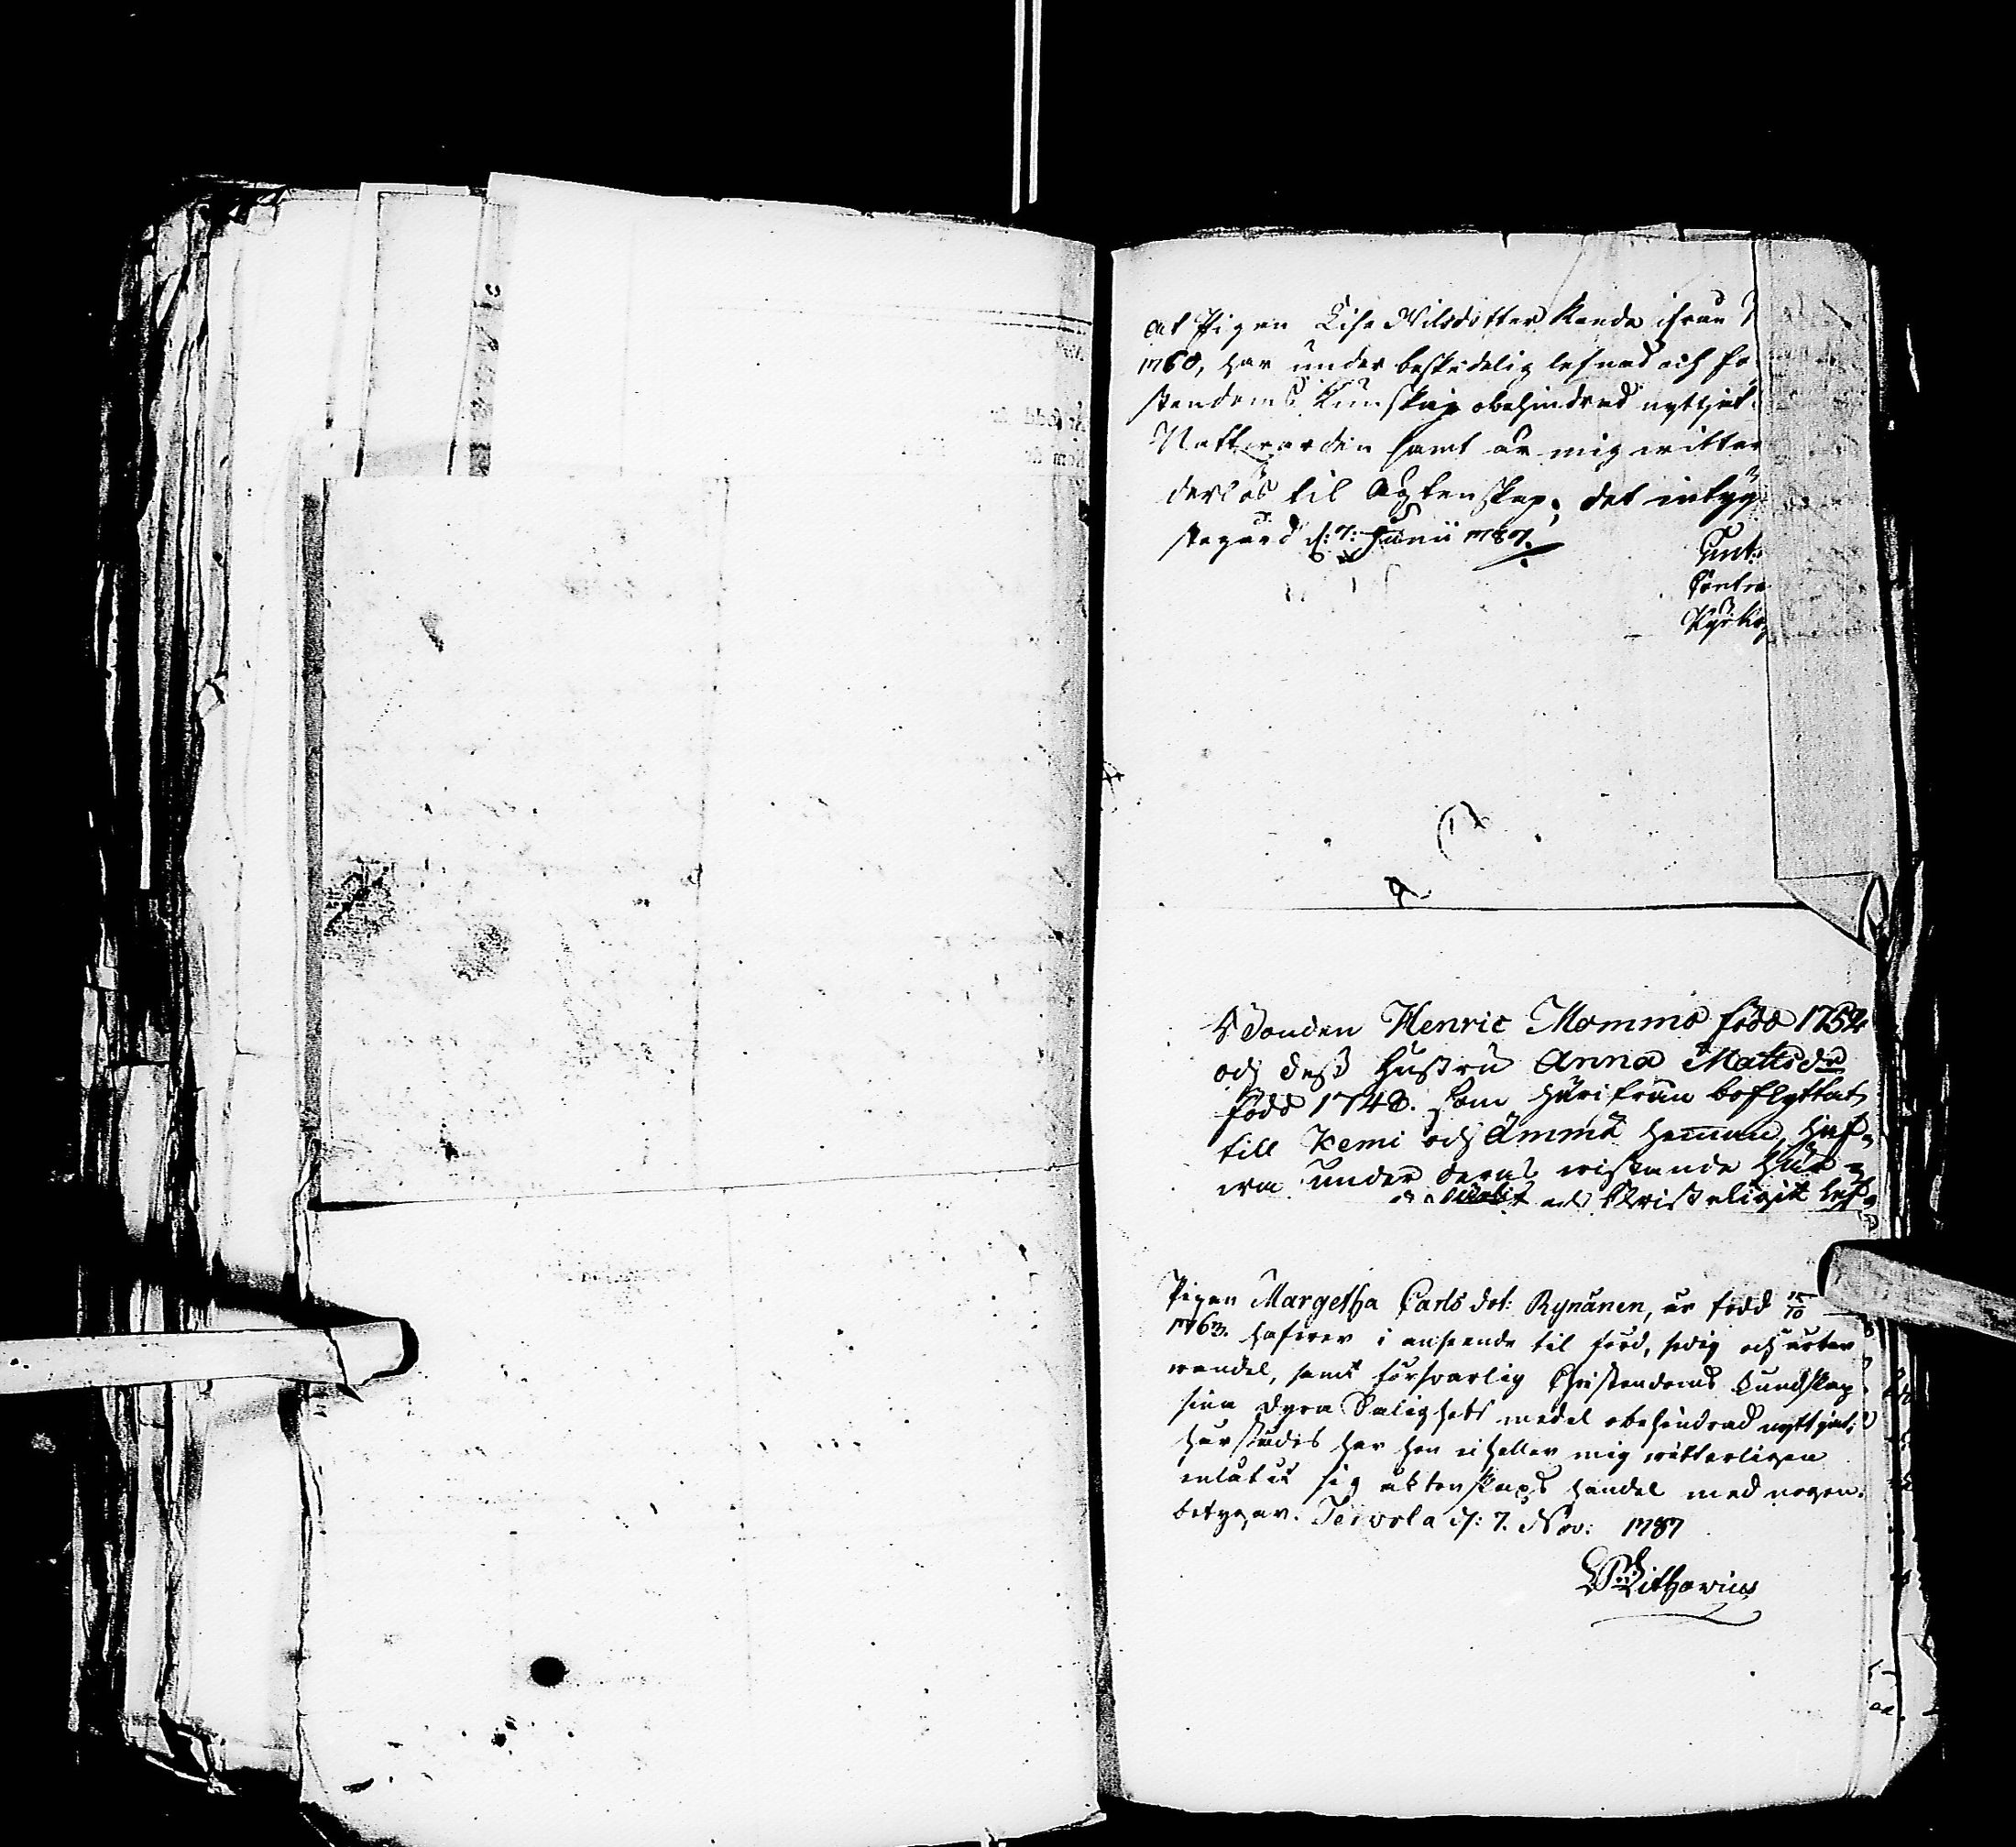 at Pigan Lisa Nilsdotter Kanda ifrån
1760, har under beskedelig lefnad och
stendoms Kunskap obehindrad nyttjat
Nattwarden samt är mig witter
derlös til Ägtenskap; det intyg
stegård d: 7: Junii 1787.
Kyrkoh
Bonden Henric Mommo född 1752
och dess hustru Anna Mattsdr
född 1748. som härifrån bortflyttat
till Kemi och Ämmä hemman, haf-
wa under deras wistande här
och Christeligit lef-
Pigan Margetha Carls dot: Rynänen, är född 15/10
1763. hafwer i anseende til förd, sedig och
wandel, samt försvarlig Christendoms kundskap
sina dyra Salighets medel obehindrad nyttjat;
härstädes har hon ei heller mig witterligen
inlåtit sig i ägtenskaps handel med nogon.
betygar. Terwola d: 7. Nov: 1787